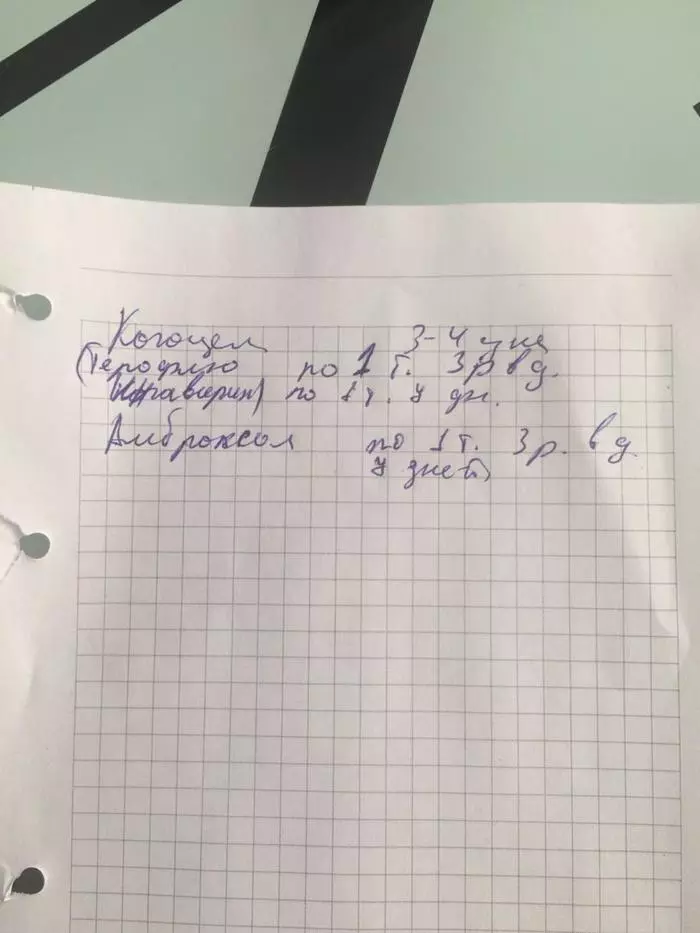 Кагоцел 3-4 дня
(Терофлю по 1 т. 3 р в д.
Ингавирин) по 1 т. 7 дн.
Амброксол по 1 т. 3 р. в д
7 дней